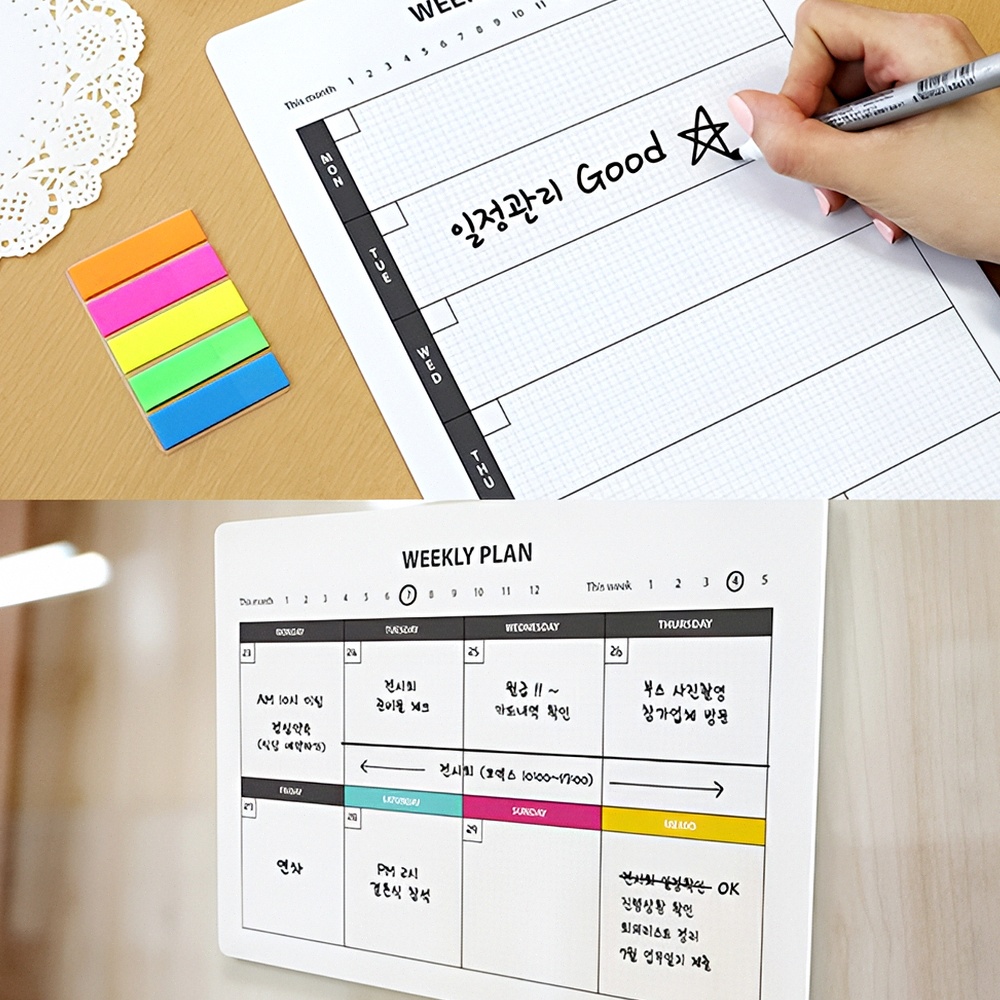 WEEKLY
This month 1 2 3 4 5 6 7 8 9 10 11
MON
일정관리 Good
TUE
WED
THU
WEEKLY PLAN
This month 1 2 3 4 5 6 7 8 9 10 11 12
This week 1 2 3 4 5
MONDAY TUESDAY WEDNESDAY THURSDAY
23 24 25 26
AM 10시 미팅
점심약속
(식당 예약하기)
전시회
준비물 체크
월급 !! ~
카드내역 확인
부스 사진촬영
참가업체 방문
전시회 (코엑스 10:00~17:00)
FRIDAY SATURDAY SUNDAY
27 28 29
연차
PM 2시
결혼식 참석
전시회 일정확인 OK
진행상황 확인
회의리스트 정리
7월 업무일지 제출